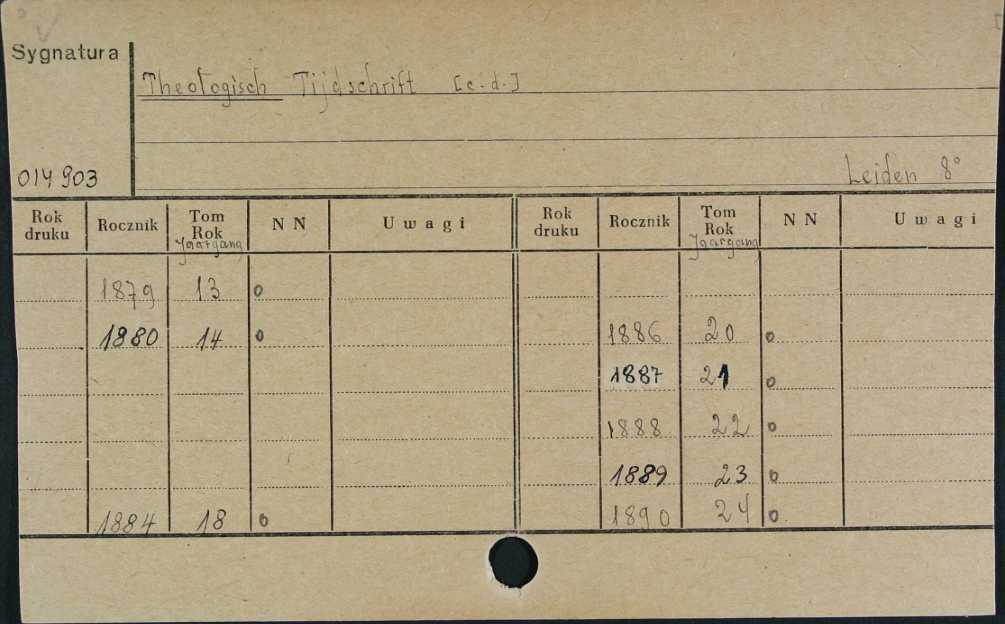 Sygnatura
Theologisch Tijdschrift [c.d.]
014903
Leiden 8°
Rok druku Rocznik Tom Rok Jaargang N N Uwagi Rok druku Rocznik Tom Rok Jaargang N N Uwagi
1879 13 o
1880 14 o 1886 20 o
1887 21 o
1888 22 o
1889 23 o
1884 18 o 1890 24 o